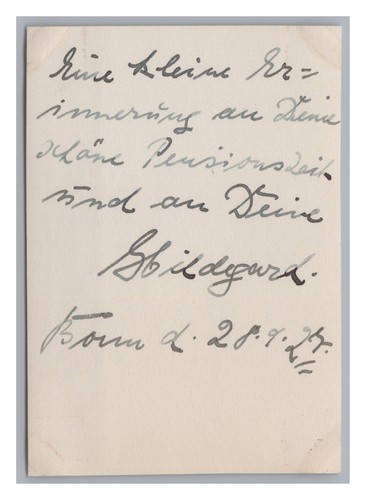 Eine kleine Er=
innerung an Deine
schöne Pensionszeit
und an Deine
Hildegard.
Bonn d. 28.9.27.